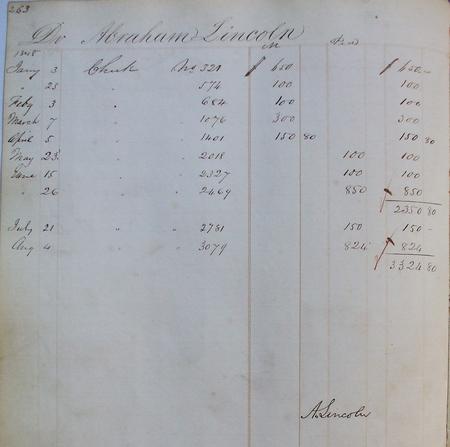 263
Dr Abraham Lincoln
1848
Jany 3 Check No 321 $ 650 $ 650 -
" 25 " " 574 100 100
Feby 3 " " 684 100 100
March 7 " " 1076 300 300
April 5 " " 1401 150 80 150 80
May 23 " " 2018 100 100
June 15 " " 2327 100 100
" 26 " " 2469 850 850
2350 80
July 21 " " 2781 150 150 -
Aug 4 " " 3079 824 824
3324 80
A. Lincoln